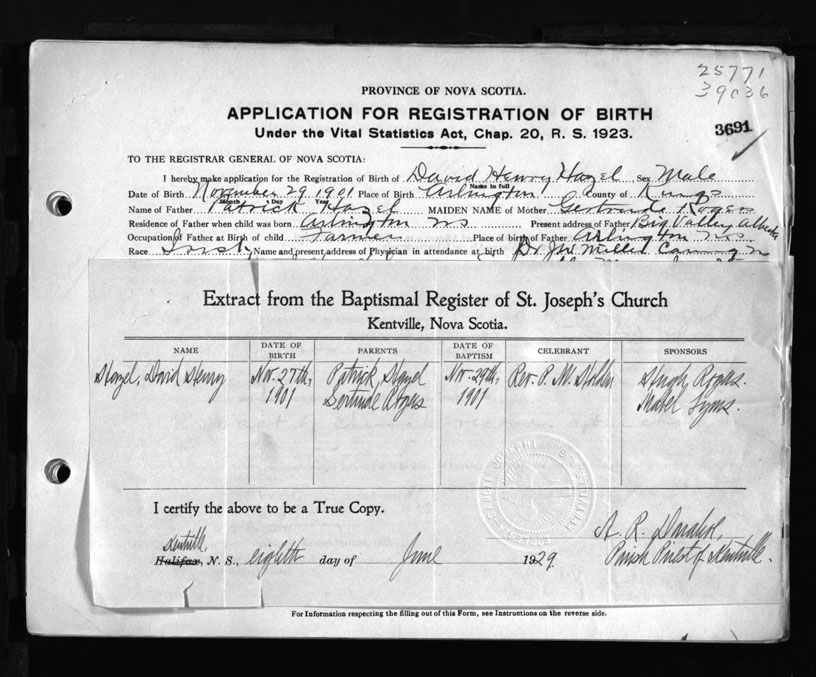 25771
39036
3691
PROVINCE OF NOVA SCOTIA.
APPLICATION FOR REGISTRATION OF BIRTH
Under the Vital Statistics Act, Chap. 20, R. S. 1923.
TO THE REGISTRAR GENERAL OF NOVA SCOTIA:
I hereby make application for the Registration of Birth of David Henry Hazel Sex Male
Name in full
Date of Birth November 29 1901 Place of Birth Arlington County of Kings
Month Day Year
Name of Father Patrick Hazel MAIDEN NAME of Mother Gertrude Rogers
Residence of Father when child was born Arlington NS Present address of Father Big Valley Alberta
Occupation of Father at Birth of child Farmer Place of birth of Father Arlington NS
Race Irish Name and present address of Physician in attendance at birth Dr
Extract from the Baptismal Register of St. Joseph's Church
Kentville, Nova Scotia.
NAME DATE OF BIRTH PARENTS DATE OF BAPTISM CELEBRANT SPONSORS
Hazel, David Henry Nov. 27th, Patrick Hazel Nov. 29th, Rev. P. M. Holden Hugh Rogers.
1901 Gertrude Rogers 1901 Mabel Lyons.
I certify the above to be a True Copy.
A. R. Donahoe,
Kentville,
Halifax, N. S., eighth day of June 1929. Parish Priest of Kentville.
For Information respecting the filling out of this Form, see Instructions on the reverse side.